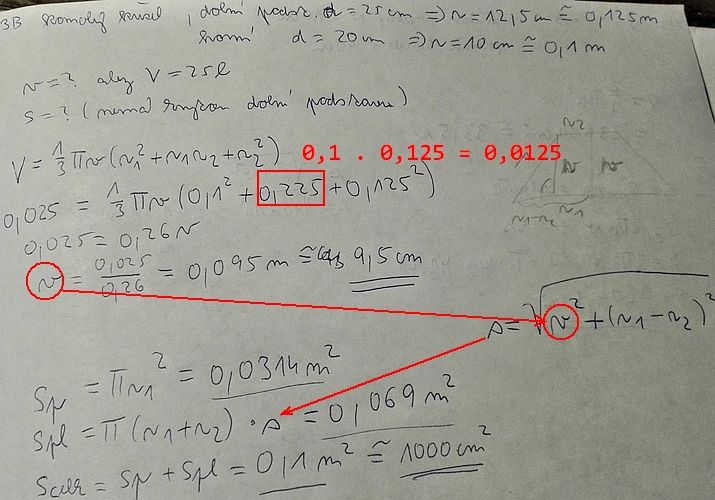 3B komolý kužel, dolní podst. d = 25 cm ⇒ r = 12,5 cm ≅ 0,125 m
horní d = 20 cm ⇒ r = 10 cm ≅ 0,1 m
v = ? aby V = 25 l
S = ? (nemá dolní podstavu)
V = 1/3 πv (r1² + r1r2 + r2²) 0,1 . 0,125 = 0,0125
0,025 = 1/3 πv (0,1² + 0,225 + 0,125²)
0,025 = 0,26 v
v = 0,025/0,26 = 0,095 m ≅ 9,5 cm
r2
v
r1-r2 r1
s = √(v² + (r1-r2)²
Sp = πr1² = 0,0314 m²
Spl = π(r1+r2) · s = 0,069 m²
Scelk = Sp + Spl = 0,1 m² ≅ 1000 cm²